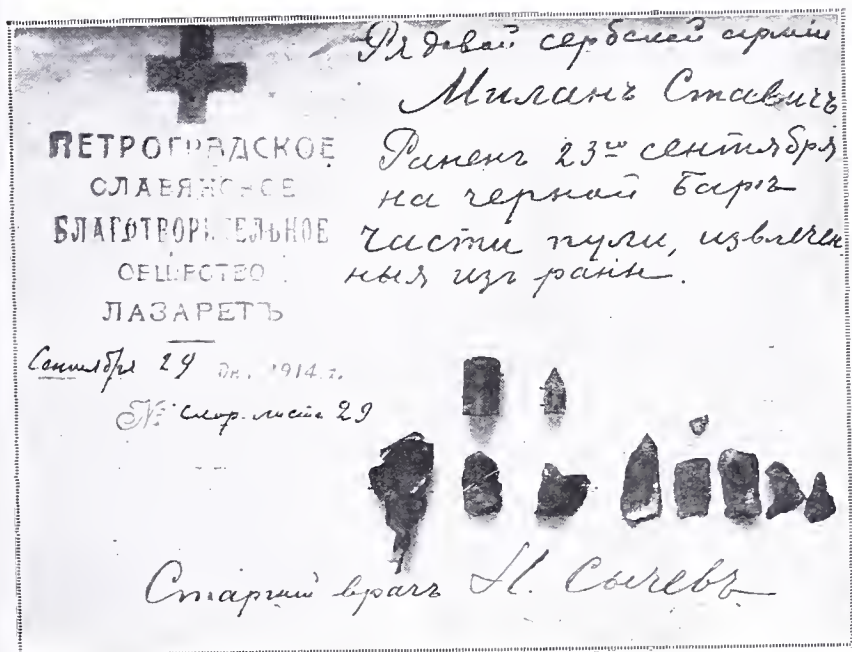 ПЕТРОГРАДСКОЕ
СЛАВЯНСКОЕ
БЛАГОТВОРИТЕЛЬНОЕ
ОБЩЕСТВО
ЛАЗАРЕТЪ
Сентября 29 дн. 1914 г.
№ скор. листа 29
Рядовой сербской армiи
Миланъ Ставичъ
Раненъ 23го сентября
на черной Баръ
части пули, извлечен
ныя изъ раны.
Старшiй врачъ Н. Сычевъ